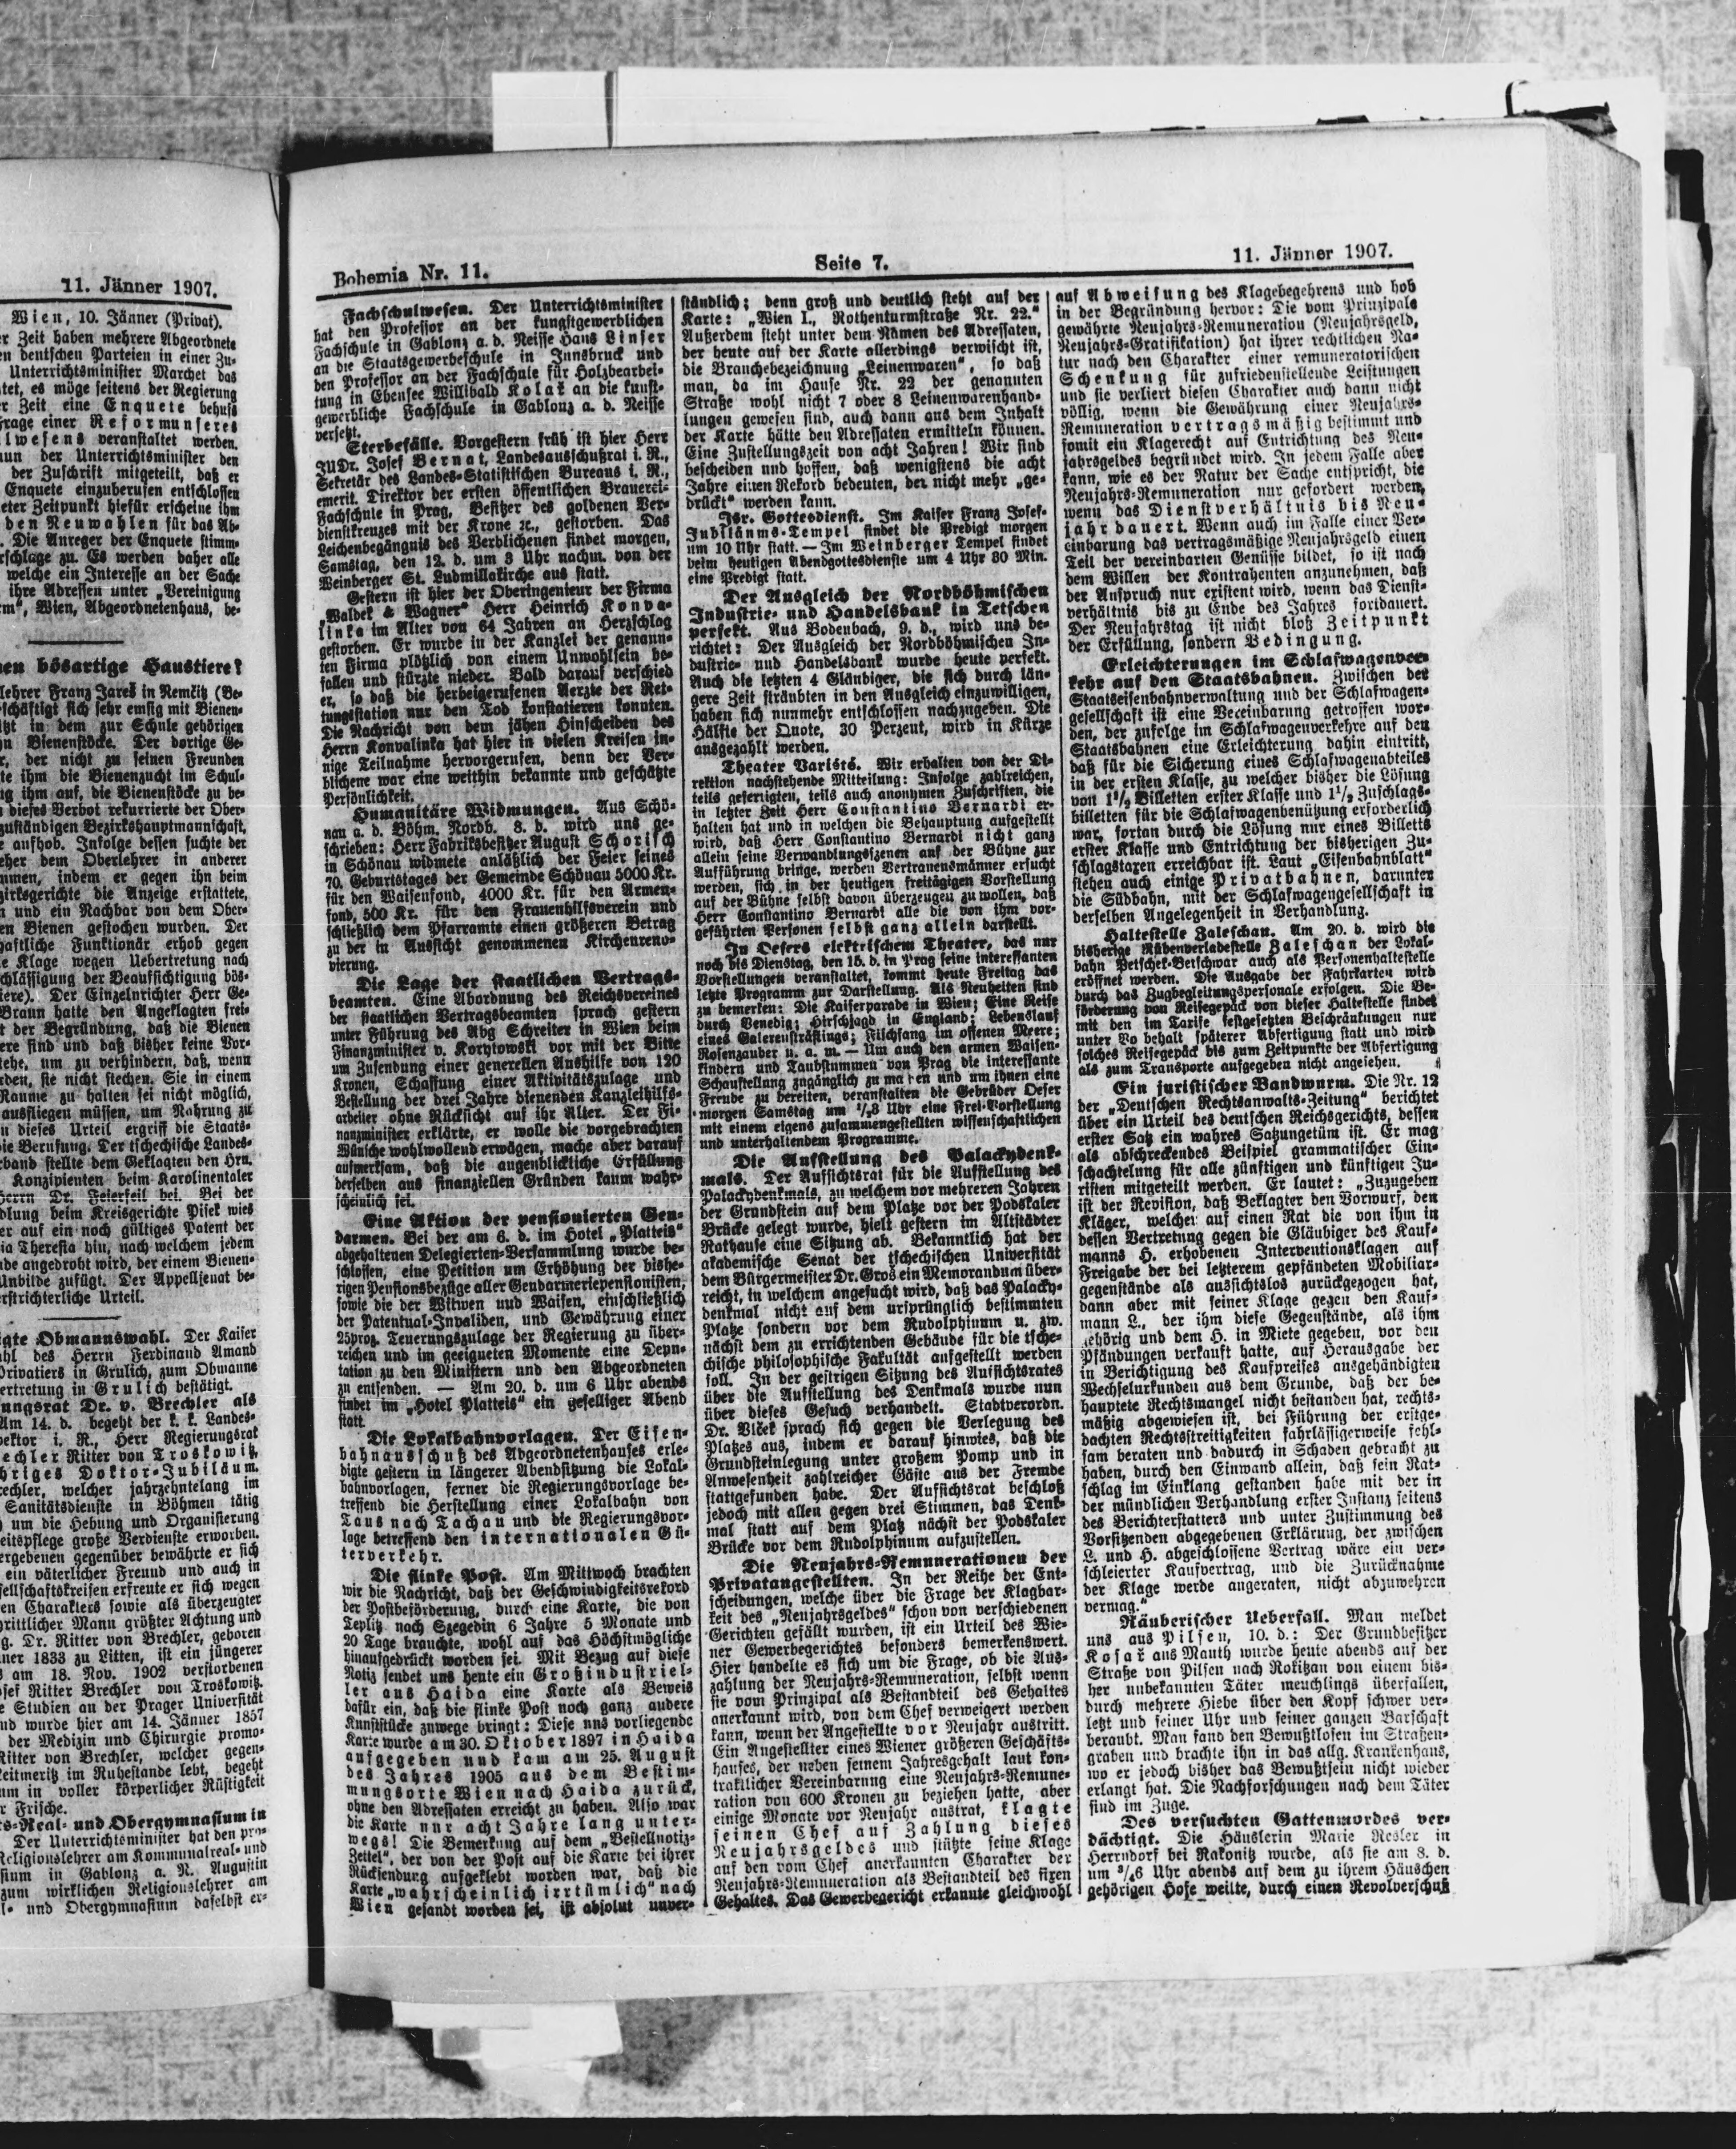 11. Jänner 1907.
Wien, 10. Jänner (Privat).
Zeit haben mehrere Abgeordnete
deutschen Parteien in einer Zu-
Unterrichtsminister Marchet das
es möge seitens der Regierung
Zeit eine Enquete behufs
einer Reform unseres
veranstaltet werden.
der Unterrichtsminister den
der Zuschrift mitgeteilt, daß er
Enquete einzuberufen entschlossen
Zeitpunkt hiefür erscheine ihm
den Neuwahlen für das Ab-
Die Anreger der Enquete stimm-
zu. Es werden daher alle
welche ein Interesse an der Sache
ihre Adressen unter „Vereinigung
Wien, Abgeordnetenhaus, be-
bösartige Haustiere?
Franz Jareš in Nemčitz (Be-
sich sehr emsig mit Bienen-
in dem zur Schule gehörigen
Bienenstöcke. Der dortige Ge-
der nicht zu seinen Freunden
ihm die Bienenzucht im Schul-
ihm auf, die Bienenstöcke zu be-
dieses Verbot rekurrierte der Ober-
zuständigen Bezirkshauptmannschaft,
aufhob. Infolge dessen suchte der
dem Oberlehrer in anderer
indem er gegen ihn beim
die Anzeige erstattete,
und ein Nachbar von dem Ober-
Bienen gestochen wurden. Der
Funktionär erhob gegen
Klage wegen Uebertretung nach
der Beaufsichtigung bös-
Der Einzelrichter Herr Ge-
Braun hatte den Angeklagten frei-
der Begründung, daß die Bienen
sind und daß bisher keine Vor-
um zu verhindern, daß, wenn
sie nicht stechen. Sie in einem
Raume zu halten sei nicht möglich,
ausfliegen müssen, um Nahrung zu
dieses Urteil ergriff die Staats-
Berufung. Der tschechische Landes-
stellte dem Geklagten den Hrn.
Konzipienten beim Karolinentaler
Herrn Dr. Feierfeil bei. Bei der
beim Kreisgerichte Pisek wies
auf ein noch gültiges Patent der
Theresia hin, nach welchem jedem
angedroht wird, der einem Bienen-
Unbilde zufügt. Der Appellsenat be-
erstrichterliche Urteil.
Obmannswahl. Der Kaiser
des Herrn Ferdinand Amand
Privatiers in Grulich, zum Obmanne
in Grulich bestätigt.
Dr. v. Brechler als
Am 14. d. begeht der k. k. Landes-
i. R., Herr Regierungsrat
Ritter von Troskowitz,
Doktor-Jubiläum.
welcher jahrzehntelang im
Sanitätsdienste in Böhmen tätig
um die Hebung und Organisierung
große Verdienste erworben.
gegenüber bewährte er sich
ein väterlicher Freund und auch in
erfreute er sich wegen
Charakters sowie als überzeugter
Mann größter Achtung und
Dr. Ritter von Brechler, geboren
1833 zu Litten, ist ein jüngerer
am 18. Nov. 1902 verstorbenen
Ritter Brechler von Troskowitz.
Studien an der Prager Universität
wurde hier am 14. Jänner 1857
der Medizin und Chirurgie promo-
Ritter von Brechler, welcher gegen-
im Ruhestande lebt, begeht
in voller körperlicher Rüstigkeit
Frische.
Real- und Obergymnasium in
Der Unterrichtsminister hat den pro-
Religionslehrer am Kommunalreal- und
in Gablonz a. N. Augustin
zum wirklichen Religionslehrer am
und Obergymnasium daselbst er-
Bohemia Nr. 11.
Seite 7.
11. Jänner 1907.
Fachschulwesen. Der Unterrichtsminister
hat den Professor an der kunstgewerblichen
Fachschule in Gablonz a. d. Neisse Hans Linser
an die Staatsgewerbeschule in Innsbruck und
den Professor an der Fachschule für Holzbearbei-
tung in Ebensee Willibald Kolař an die kunst-
gewerbliche Fachschule in Gablonz a. d. Neisse
versetzt.
Sterbefälle. Vorgestern früh ist hier Herr
JUDr. Josef Bernat, Landesausschußrat i. R.,
Sekretär des Landes-Statistischen Bureaus i. R.,
emerit. Direktor der ersten öffentlichen Brauerei-
Fachschule in Prag, Besitzer des goldenen Ver-
dienstkreuzes mit der Krone ꝛc., gestorben. Das
Leichenbegängnis des Verblichenen findet morgen,
Samstag, den 12. d. um 3 Uhr nachm. von der
Weinberger St. Ludmillakirche aus statt.
Gestern ist hier der Oberingenieur der Firma
„Waldek & Wagner“ Herr Heinrich Konva-
linka im Alter von 64 Jahren an Herzschlag
gestorben. Er wurde in der Kanzlei der genann-
ten Firma plötzlich von einem Unwohlsein be-
fallen und stürzte nieder. Bald darauf verschied
er, so daß die herbeigerufenen Aerzte der Ret-
tungsstation nur den Tod konstatieren konnten.
Die Nachricht von dem jähen Hinscheiden des
Herrn Konvalinka hat hier in vielen Kreisen in-
nige Teilnahme hervorgerufen, denn der Ver-
blichene war eine weithin bekannte und geschätzte
Persönlichkeit.
Humanitäre Widmungen. Aus Schö-
nau a. d. Böhm. Nordb. 8. d. wird uns ge-
schrieben: Herr Fabriksbesitzer August Schorisch
in Schönau widmete anläßlich der Feier seines
70. Geburtstages der Gemeinde Schönau 5000 Kr.
für den Waisenfond, 4000 Kr. für den Armen-
fond, 500 Kr. für den Frauenhilfsverein und
schließlich dem Pfarramte einen größeren Betrag
zu der in Aussicht genommenen Kirchenreno-
vierung.
Die Lage der staatlichen Vertrags-
beamten. Eine Abordnung des Reichsvereines
der staatlichen Vertragsbeamten sprach gestern
unter Führung des Abg Schreiter in Wien beim
Finanzminister v. Korytowski vor mit der Bitte
um Zusendung einer generellen Aushilfe von 120
Kronen, Schaffung einer Aktivitätszulage und
Bestellung der drei Jahre dienenden Kanzleihilfs-
arbeiter ohne Rücksicht auf ihr Alter. Der Fi-
nanzminister erklärte, er wolle die vorgebrachten
Wünsche wohlwollend erwägen, mache aber darauf
aufmerksam, daß die augenblickliche Erfüllung
derselben aus finanziellen Gründen kaum wahr-
scheinlich sei.
Eine Aktion der pensionierten Gen-
darmen. Bei der am 6. d. im Hotel „Platteis“
abgehaltenen Delegierten-Versammlung wurde be-
schlossen, eine Petition um Erhöhung der bishe-
rigen Pensionsbezüge aller Gendarmeriepensionisten,
sowie die der Witwen und Waisen, einschließlich
der Patental-Invaliden, und Gewährung einer
25proz. Teuerungszulage der Regierung zu über-
reichen und im geeigneten Momente eine Depu-
tation zu den Ministern und den Abgeordneten
zu entsenden. — Am 20. d. um 6 Uhr abends
findet im „Hotel Platteis“ ein geselliger Abend
statt.
Die Lokalbahnvorlagen. Der Eisen-
bahnausschuß des Abgeordnetenhauses erle-
digte gestern in längerer Abendsitzung die Lokal-
bahnvorlagen, ferner die Regierungsvorlage be-
treffend die Herstellung einer Lokalbahn von
Taus nach Tachau und die Regierungsvor-
lage betreffend den internationalen Gü-
terverkehr.
Die flinke Post. Am Mittwoch brachten
wir die Nachricht, daß der Geschwindigkeitsrekord
der Postbeförderung, durch eine Karte, die von
Teplitz nach Szegedin 6 Jahre 5 Monate und
20 Tage brauchte, wohl auf das Höchstmögliche
hinaufgedrückt worden sei. Mit Bezug auf diese
Notiz sendet uns heute ein Großindustriel-
ler aus Haida eine Karte als Beweis
dafür ein, daß die flinke Post noch ganz andere
Kunststücke zuwege bringt: Diese uns vorliegende
Karte wurde am 30. Oktober 1897 in Haida
aufgegeben und kam am 25. August
des Jahres 1905 aus dem Bestim-
mungsorte Wien nach Haida zurück,
ohne den Adressaten erreicht zu haben. Also war
die Karte nur acht Jahre lang unter-
wegs! Die Bemerkung auf dem „Bestellnotiz-
Zettel“, der von der Post auf die Karte bei ihrer
Rücksendung aufgeklebt worden war, daß die
Karte „wahrscheinlich irrtümlich“ nach
Wien gesandt worden sei, ist absolut unver-
ständlich; denn groß und deutlich steht auf der
Karte: „Wien I., Rothenturmstraße Nr. 22.“
Außerdem steht unter dem Namen des Adressaten,
der heute auf der Karte allerdings verwischt ist,
die Branchebezeichnung „Leinenwaren“, so daß
man, da im Hause Nr. 22 der genannten
Straße wohl nicht 7 oder 8 Leinenwarenhand-
lungen gewesen sind, auch dann aus dem Inhalt
der Karte hätte den Adressaten ermitteln können.
Eine Zustellungszeit von acht Jahren! Wir sind
bescheiden und hoffen, daß wenigstens die acht
Jahre einen Rekord bedeuten, der nicht mehr „ge-
drückt“ werden kann.
Isr. Gottesdienst. Im Kaiser Franz Josef-
Jubiläums-Tempel findet die Predigt morgen
um 10 Uhr statt. — Im Weinberger Tempel findet
beim heutigen Abendgottesdienste um 4 Uhr 30 Min.
eine Predigt statt.
Der Ausgleich der Nordböhmischen
Industrie- und Handelsbank in Tetschen
perfekt. Aus Bodenbach, 9. d., wird uns be-
richtet: Der Ausgleich der Nordböhmischen In-
dustrie- und Handelsbank wurde heute perfekt.
Auch die letzten 4 Gläubiger, die sich durch län-
gere Zeit sträubten in den Ausgleich einzuwilligen,
haben sich nunmehr entschlossen nachzugeben. Die
Hälfte der Quote, 30 Perzent, wird in Kürze
ausgezahlt werden.
Theater Variété. Wir erhalten von der Di-
rektion nachstehende Mitteilung: Infolge zahlreichen,
teils gefertigten, teils auch anonymen Zuschriften, die
in letzter Zeit Herr Constantino Bernardi er-
halten hat und in welchen die Behauptung aufgestellt
wird, daß Herr Constantino Bernardi nicht ganz
allein seine Verwandlungsszenen auf der Bühne zur
Aufführung bringe, werden Vertrauensmänner ersucht
werden, sich in der heutigen freitägigen Vorstellung
auf der Bühne selbst davon überzeugen zu wollen, daß
Herr Constantino Bernardi alle die von ihm vor-
geführten Personen selbst ganz allein darstellt.
In Oesers elektrischem Theater, das nur
noch bis Dienstag, den 15. d. in Prag seine interessanten
Vorstellungen veranstaltet, kommt heute Freitag das
letzte Programm zur Darstellung. Als Neuheiten sind
zu bemerken: Die Kaiserparade in Wien; Eine Reise
durch Venedig; Hirschjagd in England; Lebenslauf
eines Galerensträflings; Fischfang im offenen Meere;
Rosenzauber u. a. m. — Um auch den armen Waisen-
kindern und Taubstummen von Prag die interessante
Schaustellung zugänglich zu machen und um ihnen eine
Freude zu bereiten, veranstalten die Gebrüder Oeser
morgen Samstag um ½8 Uhr eine Frei-Vorstellung
mit einem eigens zusammengestellten wissenschaftlichen
und unterhaltendem Programme.
Die Aufstellung des Palackydenk-
mals. Der Aufsichtsrat für die Aufstellung des
Palackydenkmals, zu welchem vor mehreren Jahren
der Grundstein auf dem Platze vor der Podskaler
Brücke gelegt wurde, hielt gestern im Altstädter
Rathause eine Sitzung ab. Bekanntlich hat der
akademische Senat der tschechischen Universität
dem Bürgermeister Dr. Groš ein Memorandum über-
reicht, in welchem angesucht wird, daß das Palacky-
denkmal nicht auf dem ursprünglich bestimmten
Platze sondern vor dem Rudolphinum u. zw.
nächst dem zu errichtenden Gebäude für die tsche-
chische philosophische Fakultät aufgestellt werden
soll. In der gestrigen Sitzung des Aufsichtsrates
über die Aufstellung des Denkmals wurde nun
über dieses Gesuch verhandelt. Stadtverordn.
Dr. Vlček sprach sich gegen die Verlegung des
Platzes aus, indem er darauf hinwies, daß die
Grundsteinlegung unter großem Pomp und in
Anwesenheit zahlreicher Gäste aus der Fremde
stattgefunden habe. Der Aufsichtsrat beschloß
jedoch mit allen gegen drei Stimmen, das Denk-
mal statt auf dem Platz nächst der Podskaler
Brücke vor dem Rudolphinum aufzustellen.
Die Neujahrs-Remunerationen der
Privatangestellten. In der Reihe der Ent-
scheidungen, welche über die Frage der Klagbar-
keit des „Neujahrsgeldes“ schon von verschiedenen
Gerichten gefällt wurden, ist ein Urteil des Wie-
ner Gewerbegerichtes besonders bemerkenswert.
Hier handelte es sich um die Frage, ob die Aus-
zahlung der Neujahrs-Remuneration, selbst wenn
sie vom Prinzipal als Bestandteil des Gehaltes
anerkannt wird, von dem Chef verweigert werden
kann, wenn der Angestellte vor Neujahr austritt.
Ein Angestellter eines Wiener größeren Geschäfts-
hauses, der neben seinem Jahresgehalt laut kon-
traktlicher Vereinbarung eine Neujahrs-Remune-
ration von 600 Kronen zu beziehen hatte, aber
einige Monate vor Neujahr austrat, klagte
seinen Chef auf Zahlung dieses
Neujahrsgeldes und stützte seine Klage
auf den vom Chef anerkannten Charakter der
Neujahrs-Remuneration als Bestandteil des fixen
Gehaltes. Das Gewerbegericht erkannte gleichwohl
auf Abweisung des Klagebegehrens und hob
in der Begründung hervor: Die vom Prinzipale
gewährte Neujahrs-Remuneration (Neujahrsgeld,
Neujahrs-Gratifikation) hat ihrer rechtlichen Na-
tur nach den Charakter einer remuneratorischen
Schenkung für zufriedenstellende Leistungen
und sie verliert diesen Charakter auch dann nicht
völlig, wenn die Gewährung einer Neujahrs-
Remuneration vertragsmäßig bestimmt und
somit ein Klagerecht auf Entrichtung des Neu-
jahrsgeldes begründet wird. In jedem Falle aber
kann, wie es der Natur der Sache entspricht, die
Neujahrs-Remuneration nur gefordert werden,
wenn das Dienstverhältnis bis Neu-
jahr dauert. Wenn auch im Falle einer Ver-
einbarung das vertragsmäßige Neujahrsgeld einen
Teil der vereinbarten Genüsse bildet, so ist nach
dem Willen der Kontrahenten anzunehmen, daß
der Anspruch nur existent wird, wenn das Dienst-
verhältnis bis zu Ende des Jahres fortdauert.
Der Neujahrstag ist nicht bloß Zeitpunkt
der Erfüllung, sondern Bedingung.
Erleichterungen im Schlafwagenver-
kehr auf den Staatsbahnen. Zwischen der
Staatseisenbahnverwaltung und der Schlafwagen-
gesellschaft ist eine Vereinbarung getroffen wor-
den, der zufolge im Schlafwagenverkehre auf den
Staatsbahnen eine Erleichterung dahin eintritt,
daß für die Sicherung eines Schlafwagenabteiles
in der ersten Klasse, zu welcher bisher die Lösung
von 1½ Billetten erster Klasse und 1½ Zuschlags-
billetten für die Schlafwagenbenützung erforderlich
war, fortan durch die Lösung nur eines Billetts
erster Klasse und Entrichtung der bisherigen Zu-
schlagstaxen erreichbar ist. Laut „Eisenbahnblatt“
stehen auch einige Privatbahnen, darunter
die Südbahn, mit der Schlafwagengesellschaft in
derselben Angelegenheit in Verhandlung.
Haltestelle Zaleschan. Am 20. d. wird die
bisherige Rübenverladestelle Zaleschan der Lokal-
bahn Petschek-Betschwar auch als Personenhaltestelle
eröffnet werden. Die Ausgabe der Fahrkarten wird
durch das Zugbegleitungspersonale erfolgen. Die Be-
förderung von Reisegepäck von dieser Haltestelle findet
mit den im Tarife festgesetzten Beschränkungen nur
unter Vo behalt späterer Abfertigung statt und wird
solches Reisegepäck bis zum Zeitpunkte der Abfertigung
als zum Transporte aufgegeben nicht angesehen.
Ein juristischer Bandwurm. Die Nr. 12
der „Deutschen Rechtsanwalts-Zeitung“ berichtet
über ein Urteil des deutschen Reichsgerichts, dessen
erster Satz ein wahres Satzungetüm ist. Er mag
als abschreckendes Beispiel grammatischer Ein-
schachtelung für alle zünftigen und künftigen Ju-
risten mitgeteilt werden. Er lautet: „Zuzugeben
ist der Revision, daß Beklagter den Vorwurf, den
Kläger, welcher auf einen Rat die von ihm in
dessen Vertretung gegen die Gläubiger des Kauf-
manns H. erhobenen Interventionsklagen auf
Freigabe der bei letzterem gepfändeten Mobiliar-
gegenstände als aussichtslos zurückgezogen hat,
dann aber mit seiner Klage gegen den Kauf-
mann L., der ihm diese Gegenstände, als ihm
gehörig und dem H. in Miete gegeben, vor den
Pfändungen verkauft hatte, auf Herausgabe der
in Berichtigung des Kaufpreises ausgehändigten
Wechselurkunden aus dem Grunde, daß der be-
hauptete Rechtsmangel nicht bestanden hat, rechts-
mäßig abgewiesen ist, bei Führung der erstge-
dachten Rechtsstreitigkeiten fahrlässigerweise fehl-
sam beraten und dadurch in Schaden gebracht zu
haben, durch den Einwand allein, daß sein Rat-
schlag im Einklang gestanden habe mit der in
der mündlichen Verhandlung erster Instanz seitens
des Berichterstatters und unter Zustimmung des
Vorsitzenden abgegebenen Erklärung, der zwischen
L. und H. abgeschlossene Vertrag wäre ein ver-
schleierter Kaufvertrag, und die Zurücknahme
der Klage werde angeraten, nicht abzuwehren
vermag.“
Räuberischer Ueberfall. Man meldet
uns aus Pilsen, 10. d.: Der Grundbesitzer
Kosař aus Mauth wurde heute abends auf der
Straße von Pilsen nach Rokitzan von einem bis-
her unbekannten Täter meuchlings überfallen,
durch mehrere Hiebe über den Kopf schwer ver-
letzt und seiner Uhr und seiner ganzen Barschaft
beraubt. Man fand den Bewußtlosen im Straßen-
graben und brachte ihn in das allg. Krankenhaus,
wo er jedoch bisher das Bewußtsein nicht wieder
erlangt hat. Die Nachforschungen nach dem Täter
sind im Zuge.
Des versuchten Gattenmordes ver-
dächtigt. Die Häuslerin Marie Resler in
Herrndorf bei Rakonitz wurde, als sie am 8. d.
um ¾6 Uhr abends auf dem zu ihrem Häuschen
gehörigen Hofe weilte, durch einen Revolverschuß